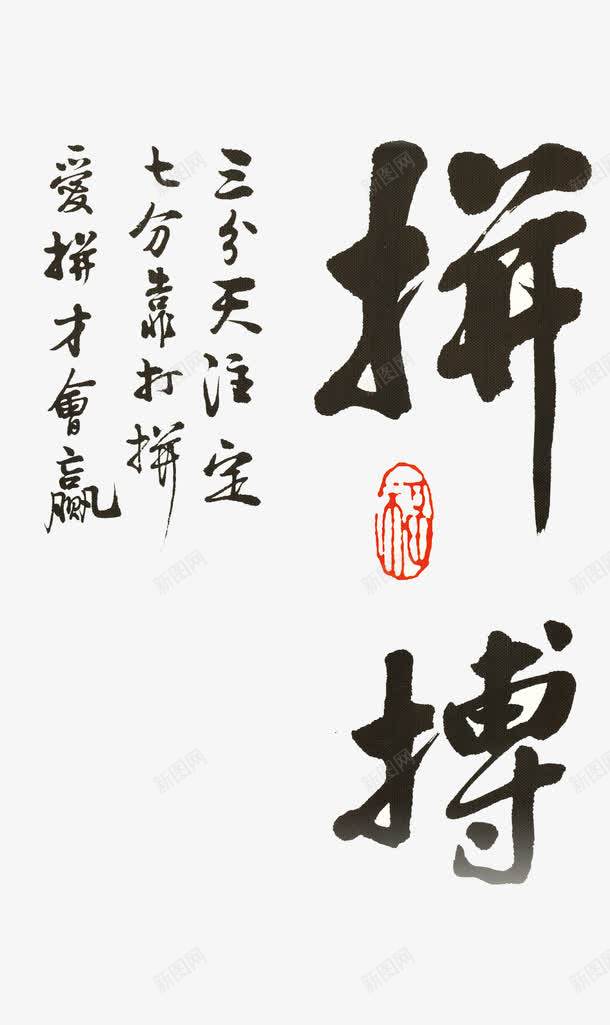 拼搏
三分天注定
七分靠打拼
愛拼才會贏
新图网